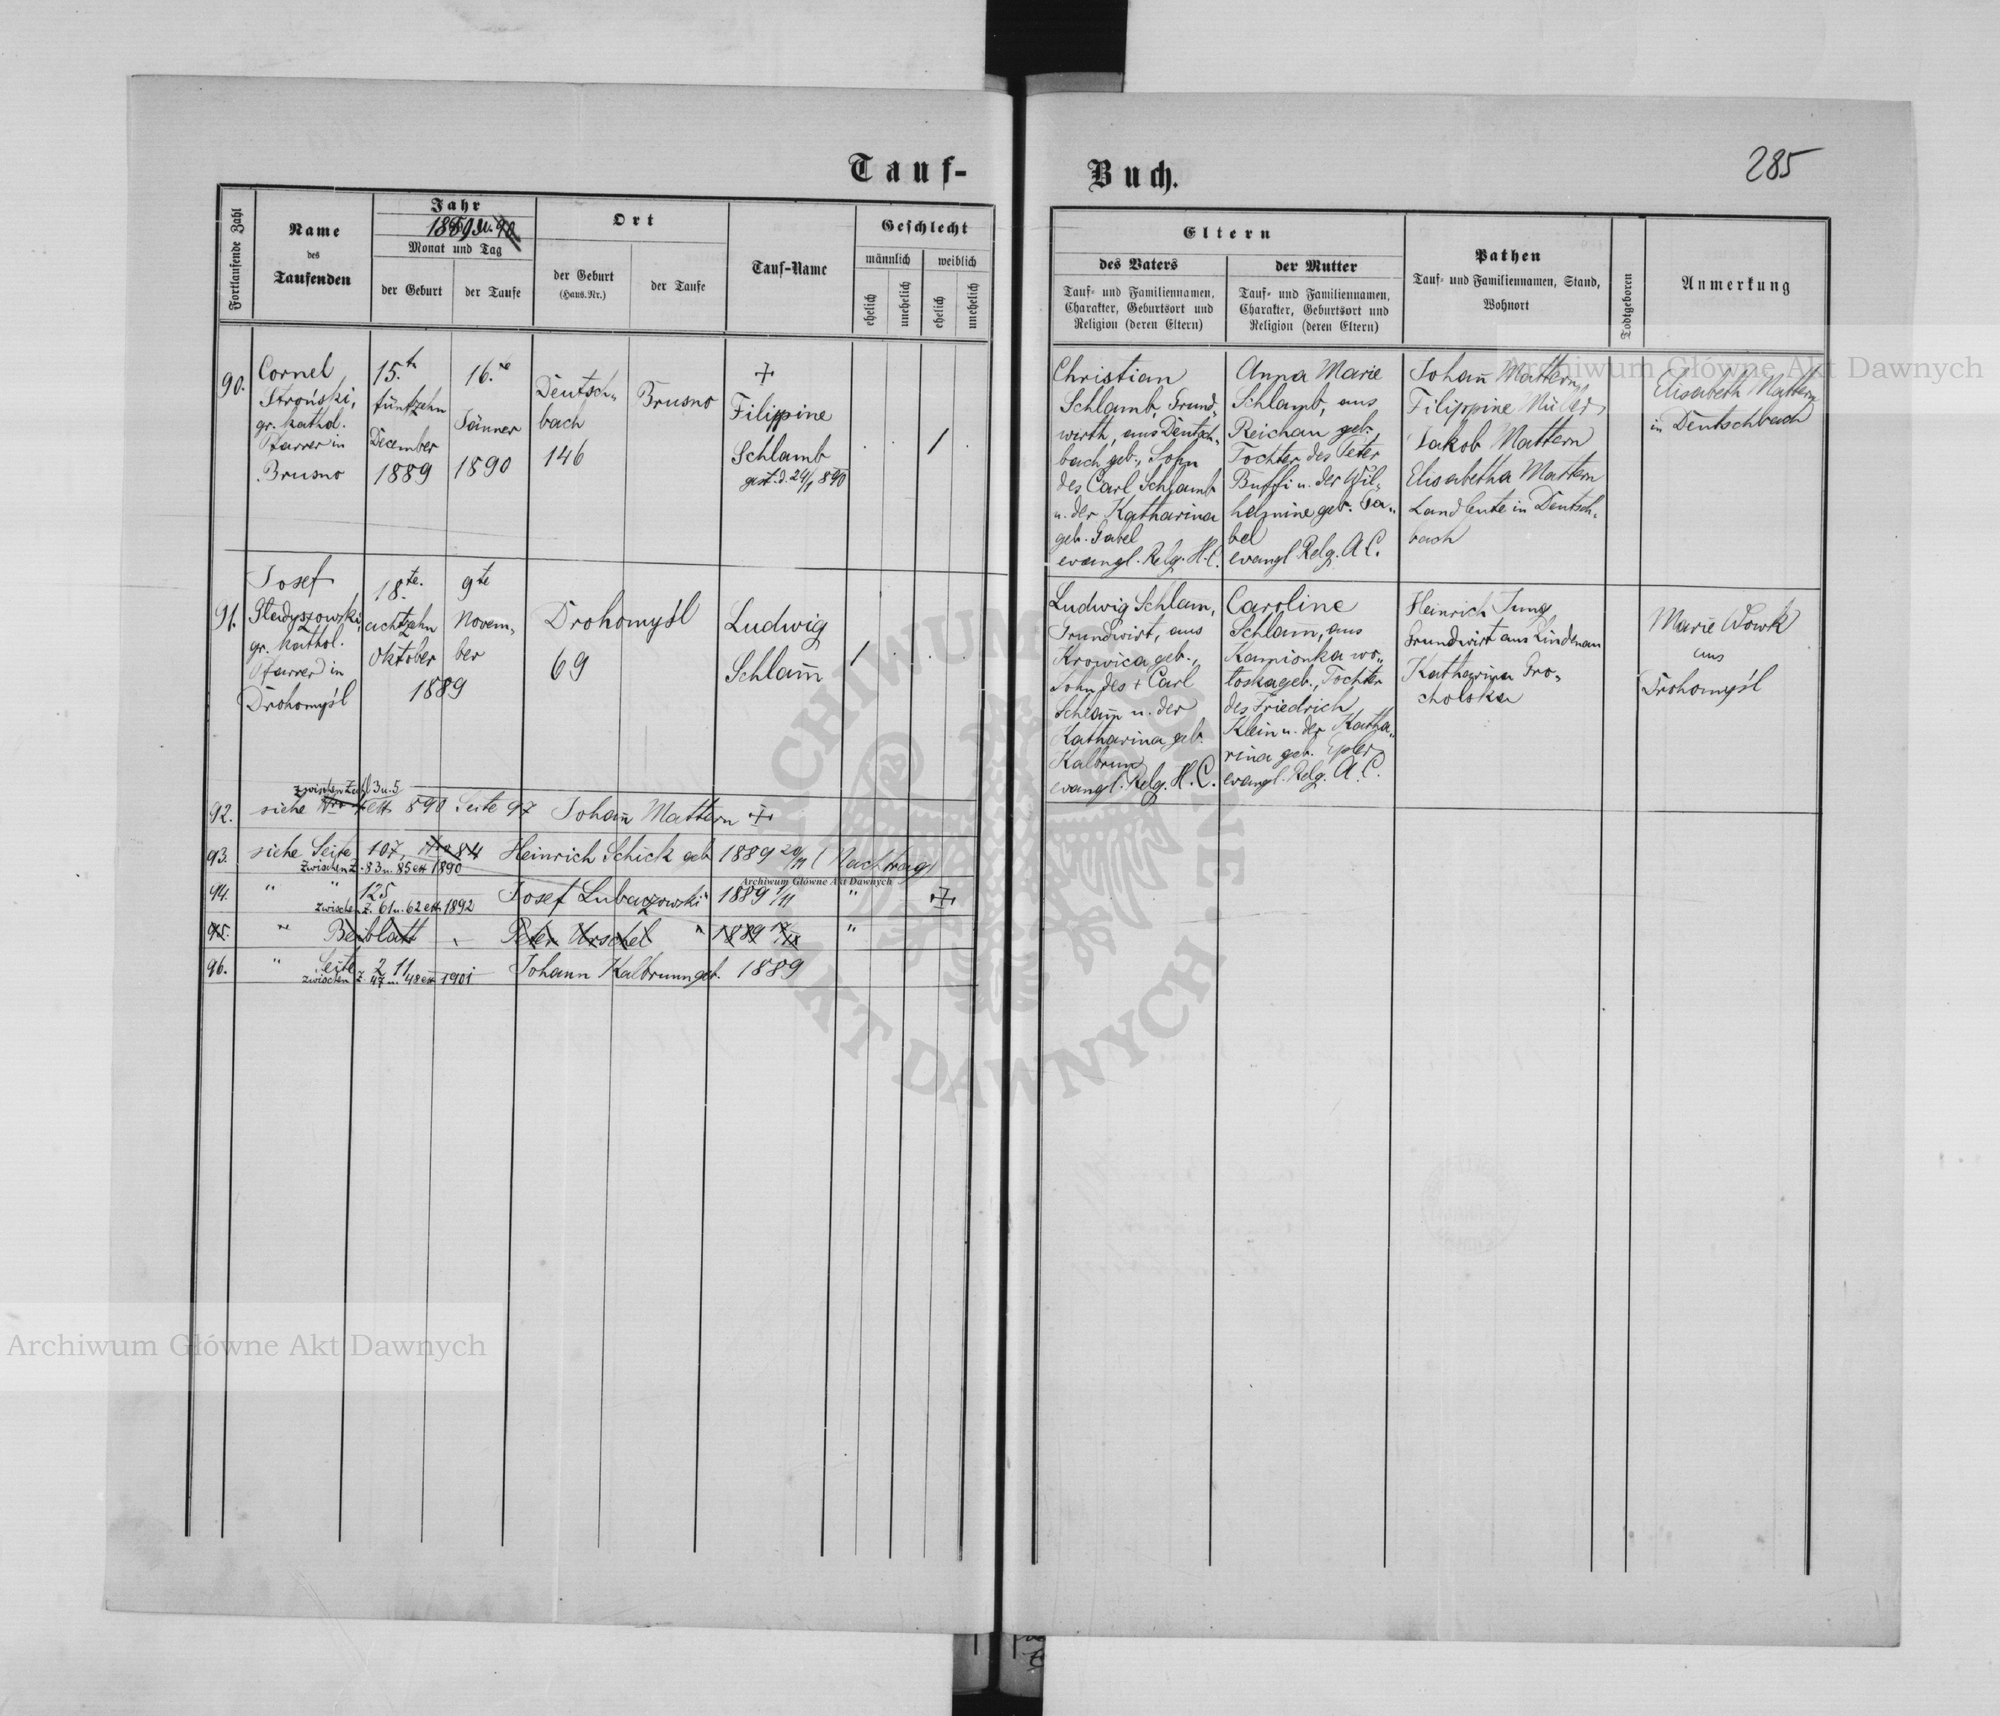 Tauf-
Buch.
285
Fortlaufende Zahl
Name
des
Taufenden
Jahr
1889 u. 90
Monat und Tag
der Geburt
der Taufe
Ort
der Geburt
(Haus-Nr.)
der Taufe
Tauf-Name
Geschlecht
männlich
weiblich
ehelich
unehelich
ehelich
unehelich
Eltern
des Vaters
Tauf- und Familiennamen,
Charakter, Geburtsort und
Religion (deren Eltern)
der Mutter
Tauf- und Familiennamen,
Charakter, Geburtsort und
Religion (deren Eltern)
Pathen
Tauf- und Familiennamen, Stand,
Wohnort
Todtgeboren
Anmerkung
90.
Cornel
Stroński,
gr. kathol.
Pfarrer in
Brusno
15.te
fünfzehn
December
1889
16.te
Jänner
1890
Deutsch-
bach
146
Brusno
+
Filippine
Schlamb
gest. d. 24/1 890
/
Christian
Schlamb, Grund-
wirth, aus Deutsch-
bach geb., Sohn
des Carl Schlamb
u. der Katharina
geb. Gabel
evangl. Relg. H. C.
Anna Marie
Schlamb, aus
Reichau geb.
Tochter des Peter
Buffi u. der Wil-
helmine geb. Ga-
bel
evangl Relg. A. C.
Johañ Mattern,
Filippine Müller
Jakob Mattern
Elisabetha Mattern
Landleute in Deutsch-
bach
Elisabeth Mattern
in Deutschbach
91.
Josef
Gładyszowski,
gr. kathol.
Pfarrer in
Drohomyśl
18.te
achtzehn
Oktober
1889
9te
Novem-
ber
Drohomyśl
69
Ludwig
Schlam̃
/
Ludwig Schlam,
Grundwirt, aus
Krowica geb.,
Sohn des + Carl
Schlam̃ u. der
Katharina geb.
Kalbrun
evangl. Relg. H. C.
Caroline
Schlam̃, aus
Kamionka wo-
łoska geb., Tochter
des Friedrich
Klein u. der Katha-
rina geb.
evangl. Relg. A. C.
Heinrich Jung
Grundwirt aus Lindenau
Katharina Gro-
cholska
Marie Wowk
aus
Drohomyśl
zwischen Zahl 3 u. 5
92. siehe 890 Seite 97 Johañ Mattern +
93. siehe Seite 107, Nro 84 Heinrich Schick geb. 1889 20/11 (Nachtrag)
zwischen Z. 83 u. 85 ex 1890
94. " " 125 Josef Lubaczowski " 1889 1/11 " +
zwischen Z. 61 u. 62 ex 1892
95. " Beiblatt Peter Urschel " 1889 "
96. " Seite 211 Johann Kalbrunn geb. 1889
zwischen Z. 47 u. 48 ex 1901
Archiwum Główne Akt Dawnych
Archiwum Główne Akt Dawnych
Archiwum Główne Akt Dawnych
ARCHIWUM GŁÓWNE AKT DAWNYCH